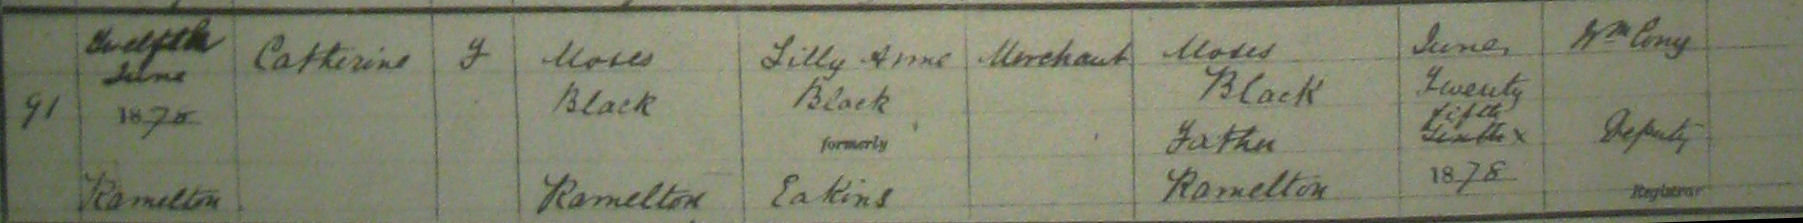 91
Twelfth
June
1878
Ramelton
Catherine
F
Moses
Black
Ramelton
Lilly Anne
Black
formerly
Eakins
Merchant
Moses
Black
Father
Ramelton
June
Twenty
fifth
1878
Wm
Deputy
Registrar